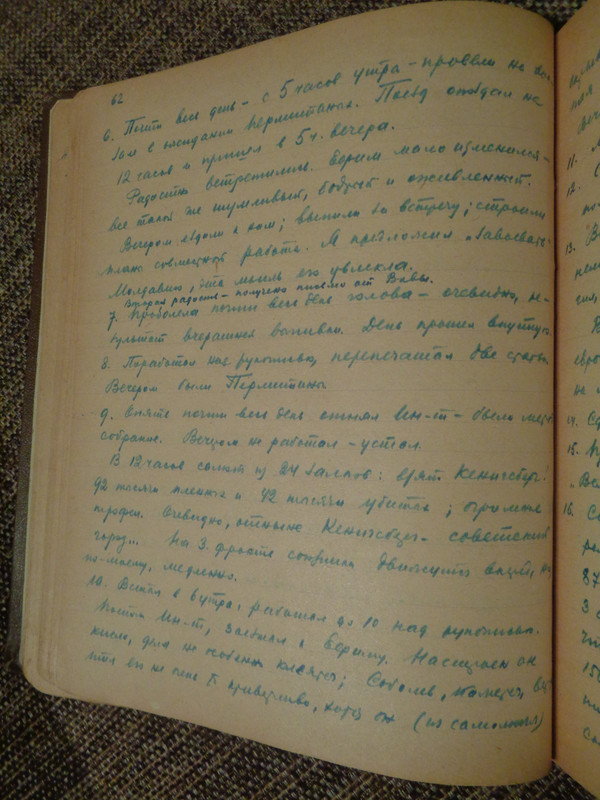 62
6. Почти весь день - с 5 часов утра - провели на вок-
зале в ожидании Пермитиных. Поезд опоздал на
12 часов и пришел в 5 ч. вечера.
Радостно встретились. Ефим мало изменился -
все такой же шумливый, бодрый и оживленный.
Вечером ездили к ним; выпили за встречу; строили
планы совместной работы. Я предложил „Завоевать
Молдавию", эта мысль его увлекла.
Вторая радость - получено письмо от Вовы.
7. Проболела почти весь день голова - очевидно, ре-
зультат вчерашней выпивки. День прошел впустую.
8. Поработал над рукописью, перепечатал две статьи.
Вечером были Пермитины
9. Опять почти весь день отнял Ин-т - было
собрание. Вечером не работал - устал.
В 12 часов салют из 24 залпов: взят Кенигсберг!
92 тысячи пленных и 42 тысячи убитых; огромные
трофеи. Очевидно, отныне Кенигсберг - советский
город... На З. фронте союзники движутся вперед, но,
по-моему, медленно.
10. Встал в 6 утра, работал до 10 над рукописью.
Потом Ин-т, заезжал к Ефиму. Настроен он
кисло, дела не особенно клеятся; Соболев,
его не очень-то приветливо, хотя он (из самолюбия)
11.
12.
13.
14.
15.
16.
87